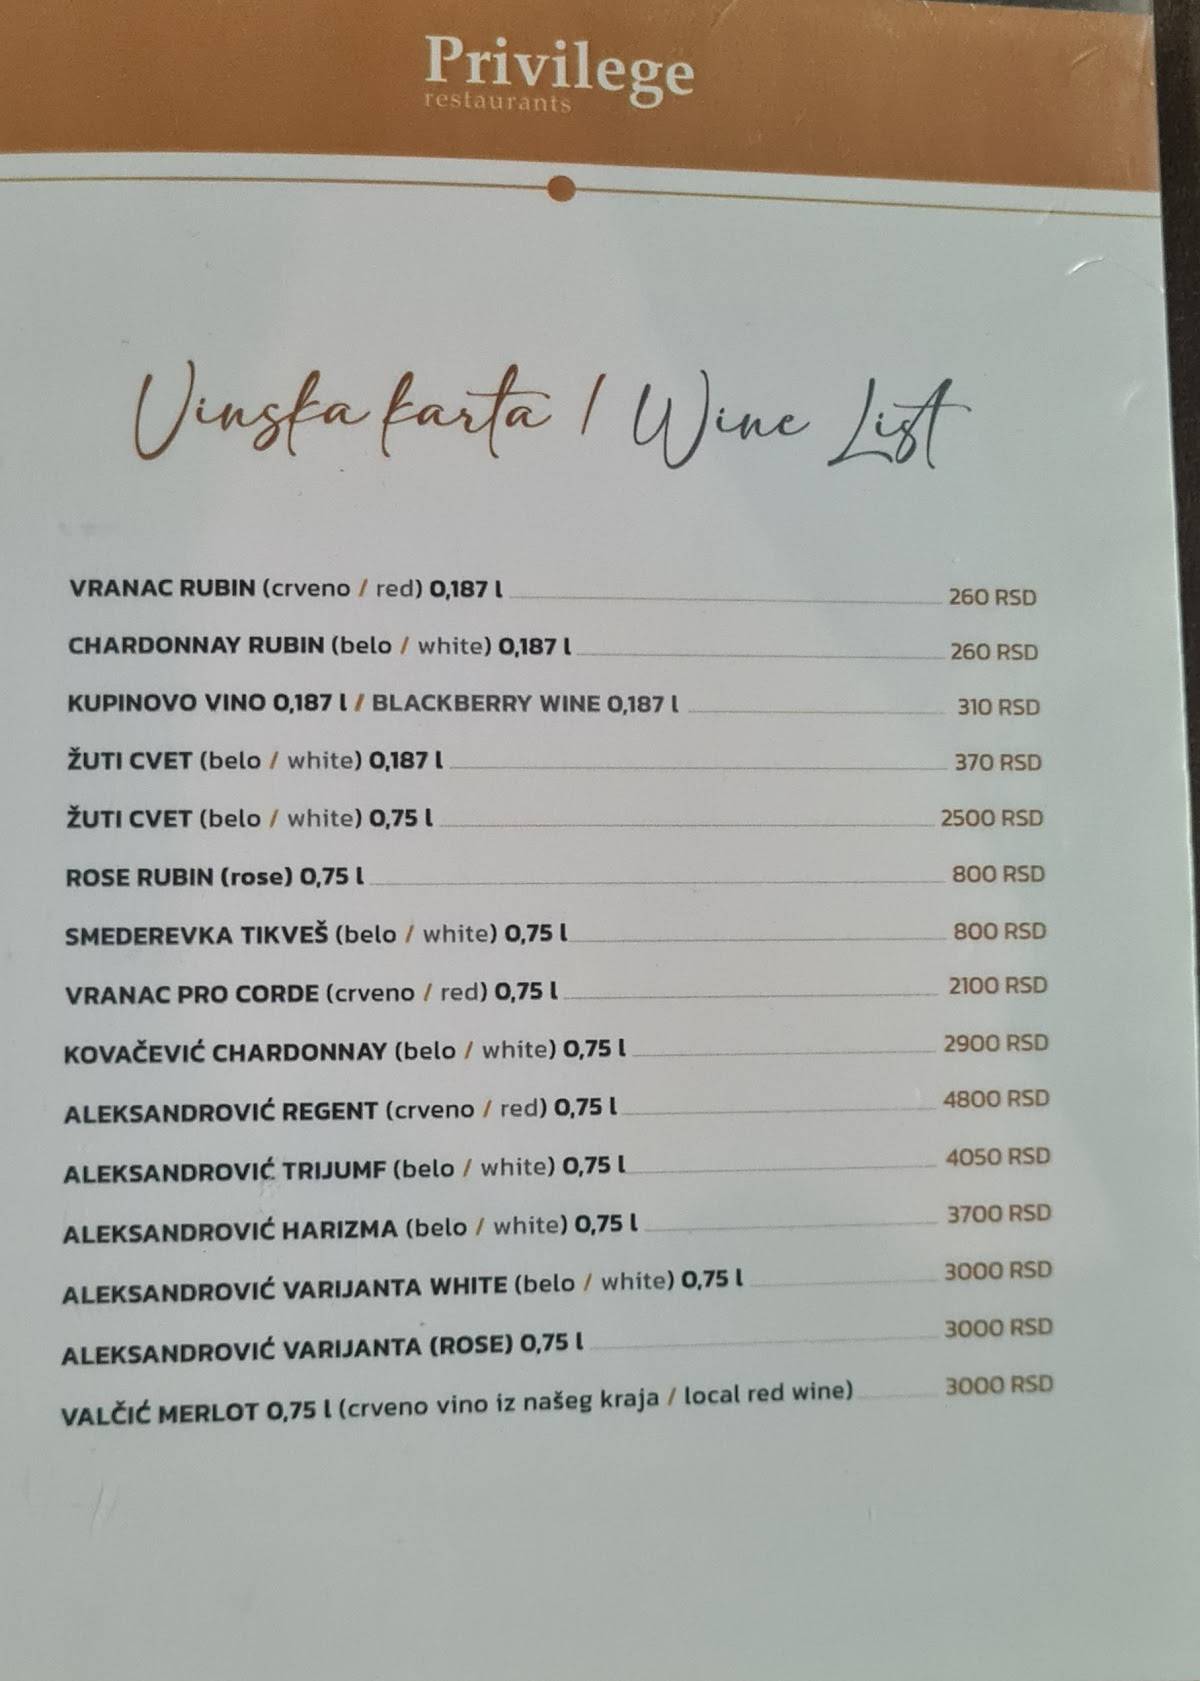 Privilege
restaurants
Vinska karta / Wine List
VRANAC RUBIN (crveno / red) 0,187 l 260 RSD
CHARDONNAY RUBIN (belo / white) 0,187 l 260 RSD
KUPINOVO VINO 0,187 l / BLACKBERRY WINE 0,187 l 310 RSD
ŽUTI CVET (belo / white) 0,187 l 370 RSD
ŽUTI CVET (belo / white) 0,75 l 2500 RSD
ROSE RUBIN (rose) 0,75 l 800 RSD
SMEDEREVKA TIKVEŠ (belo / white) 0,75 l 800 RSD
VRANAC PRO CORDE (crveno / red) 0,75 l 2100 RSD
KOVAČEVIĆ CHARDONNAY (belo / white) 0,75 l 2900 RSD
ALEKSANDROVIĆ REGENT (crveno / red) 0,75 l 4800 RSD
ALEKSANDROVIĆ TRIJUMF (belo / white) 0,75 l 4050 RSD
ALEKSANDROVIĆ HARIZMA (belo / white) 0,75 l 3700 RSD
ALEKSANDROVIĆ VARIJANTA WHITE (belo / white) 0,75 l 3000 RSD
ALEKSANDROVIĆ VARIJANTA (ROSE) 0,75 l 3000 RSD
VALČIĆ MERLOT 0,75 l (crveno vino iz našeg kraja / local red wine) 3000 RSD